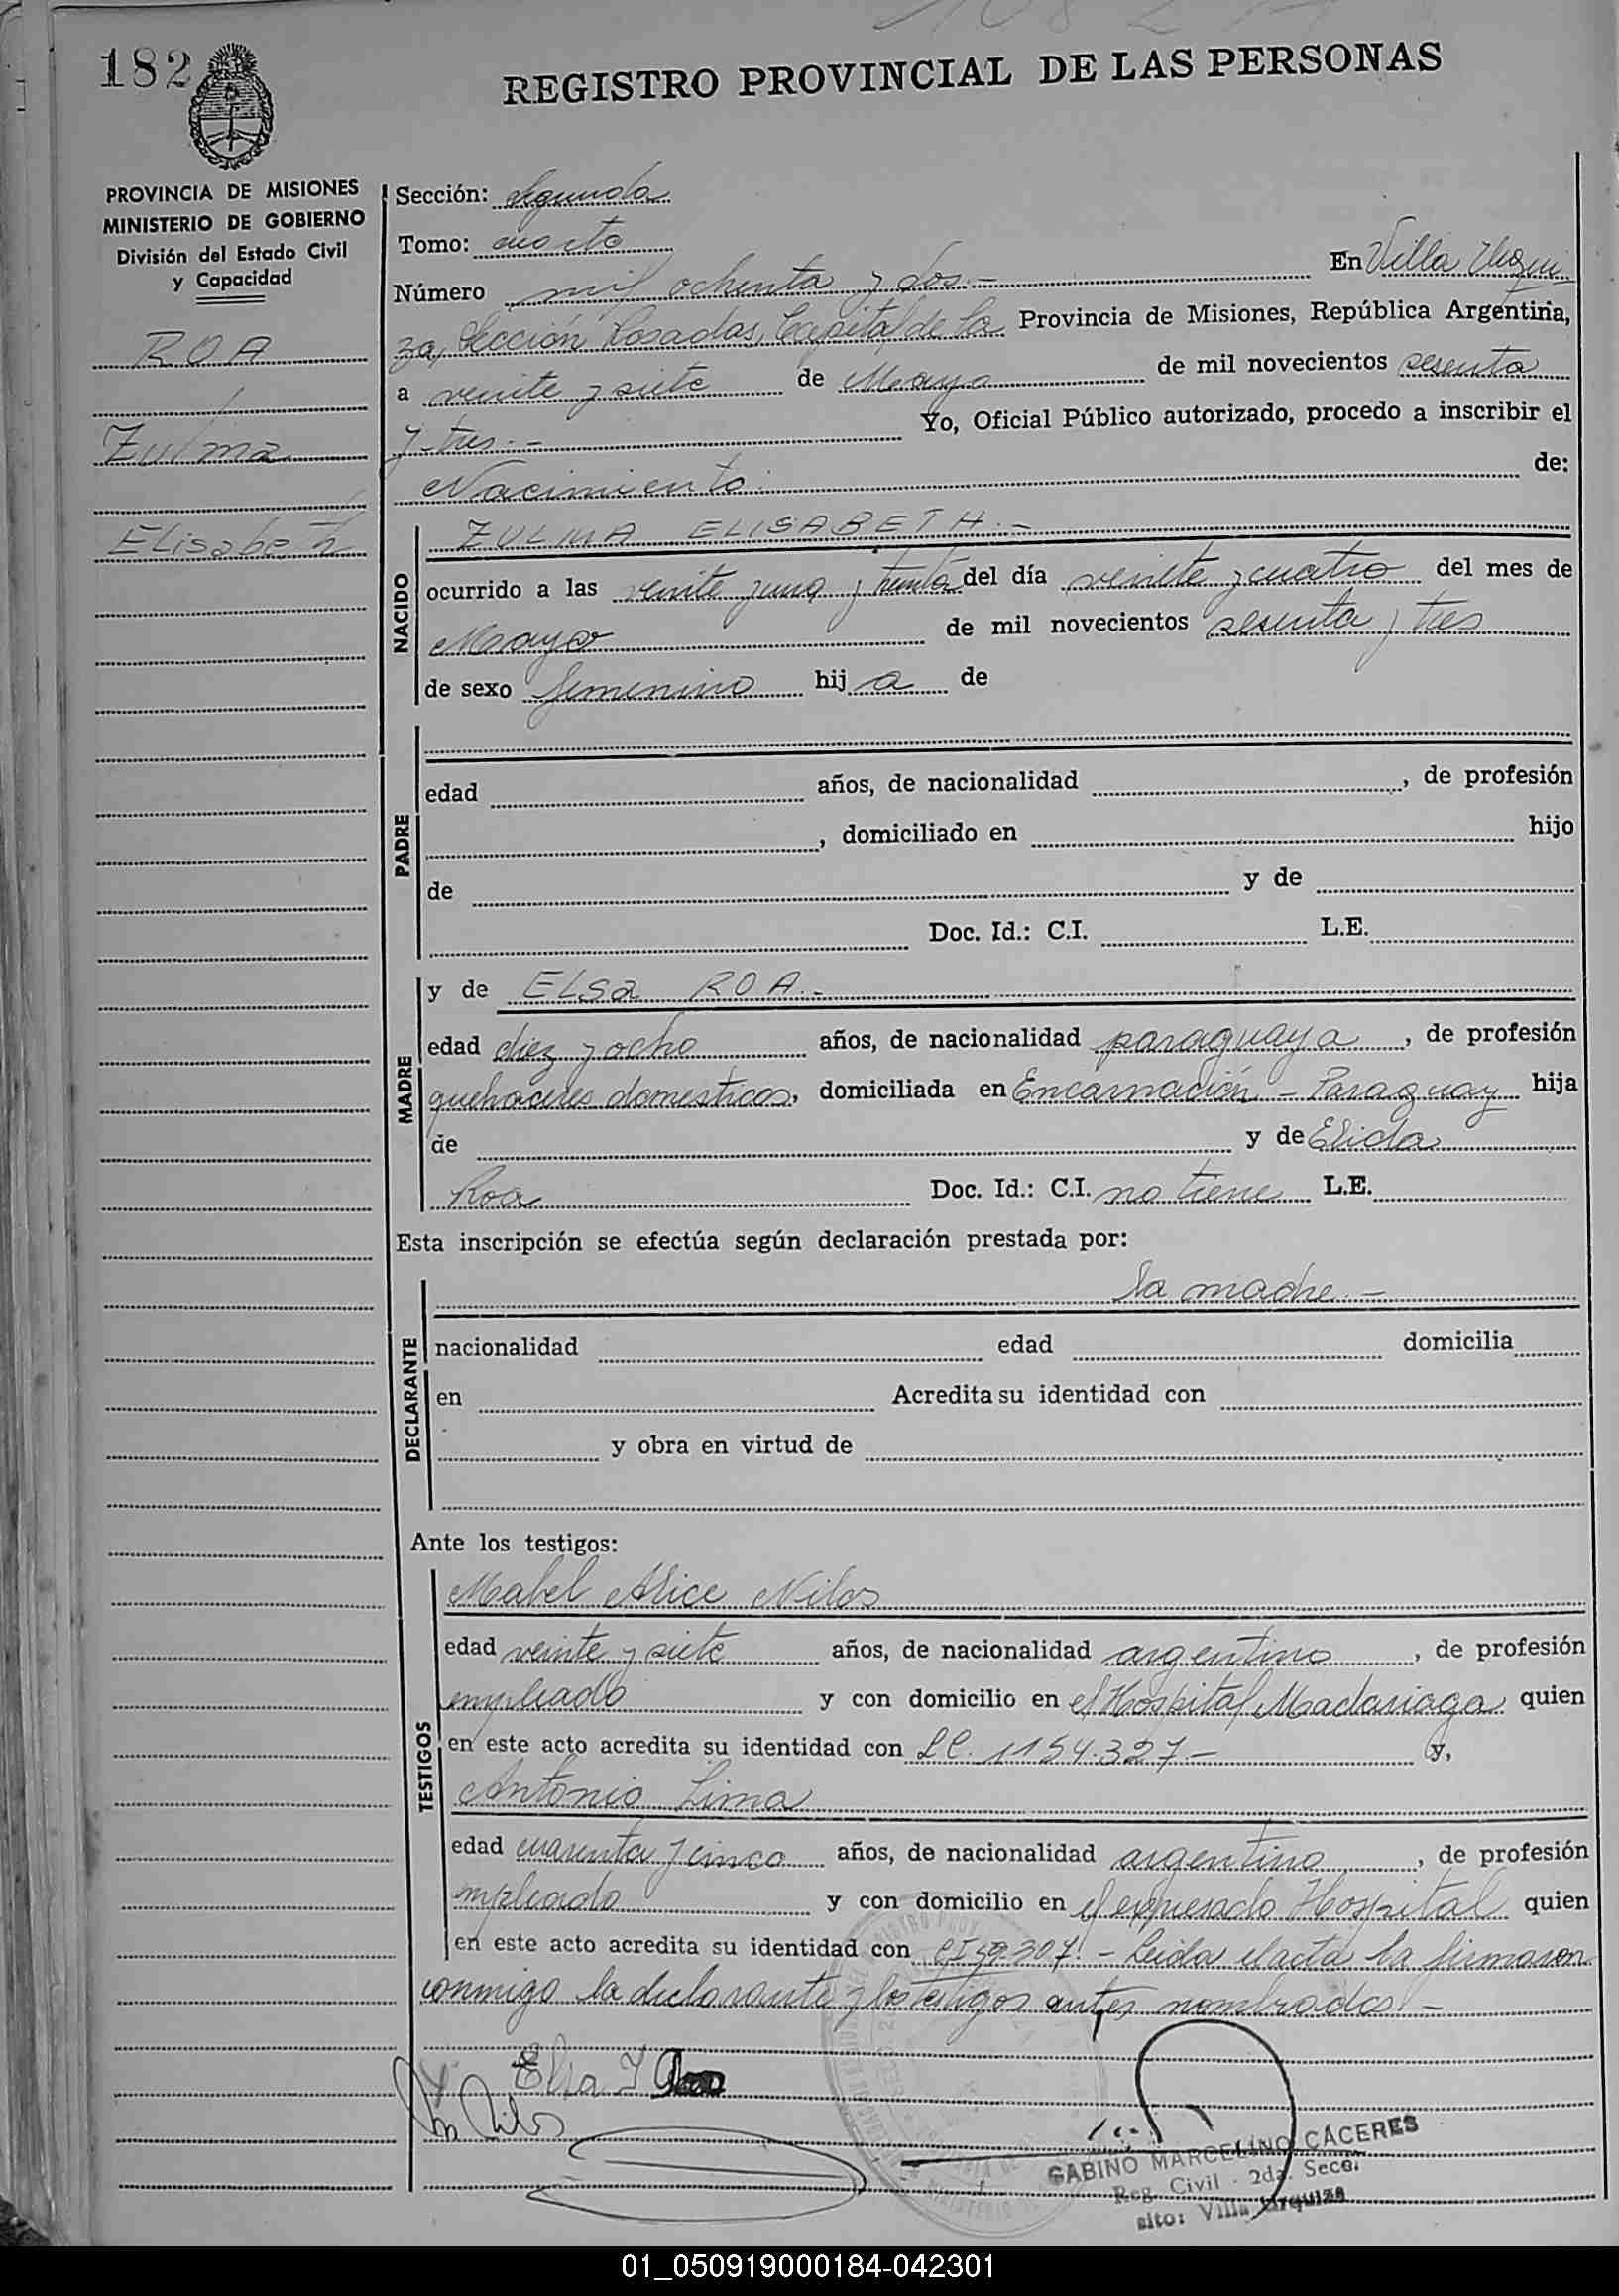 182
REGISTRO PROVINCIAL DE LAS PERSONAS
PROVINCIA DE MISIONES
MINISTERIO DE GOBIERNO
División del Estado Civil
y Capacidad
ROA
Zulma
Elisabeth
Sección: Segunda
Tomo: cuarto
Número mil ochenta y dos.- En Villa Urqui
za, Sección Posadas, Capital de la Provincia de Misiones, República Argentina,
a veinte y siete de Mayo de mil novecientos sesenta
y tres.- Yo, Oficial Público autorizado, procedo a inscribir el
Nacimiento de:
NACIDO
ZULMA ELISABETH.-
ocurrido a las veinte y una y treinta del día veinte y cuatro del mes de
Mayo de mil novecientos sesenta y tres
de sexo femenino hij a de
PADRE
edad años, de nacionalidad , de profesión
, domiciliado en hijo
de y de
Doc. Id.: C.I. L.E.
MADRE
y de ELSA ROA.-
edad diez y ocho años, de nacionalidad paraguaya , de profesión
quehaceres domesticos, domiciliada en Encarnación - Paraguay hija
de y de Elida
Roa Doc. Id.: C.I. no tiene L.E.
Esta inscripción se efectúa según declaración prestada por:
DECLARANTE
la madre.-
nacionalidad edad domicilia
en Acredita su identidad con
y obra en virtud de
Ante los testigos:
TESTIGOS
Mabel Alice Nilos
edad veinte y siete años, de nacionalidad argentino , de profesión
empleado y con domicilio en el Hospital Madariaga quien
en este acto acredita su identidad con LC. 1154.327.- y,
Antonio Lima
edad cuarenta y cinco años, de nacionalidad argentino , de profesión
empleado y con domicilio en el expresado Hospital quien
en este acto acredita su identidad con CI 59.307.- Leida el acta la firmaron
conmigo la declarante y los testigos antes nombrados.-
Elsa
GABINO MARCELINO CÁCERES
Reg. Civil - 2da. Secc.
sito: Villa Urquiza
01_050919000184-042301